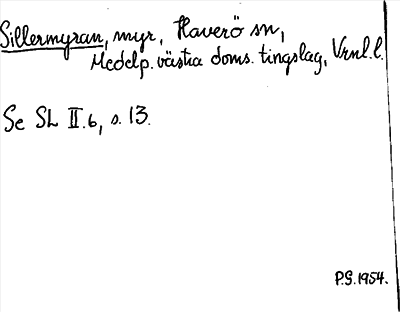 Sillermyran, myr, Haverö sn,
Medelp. västra doms. tingslag, Vrnl.l.
Se SL II.6, s. 13.
P.S. 1954.